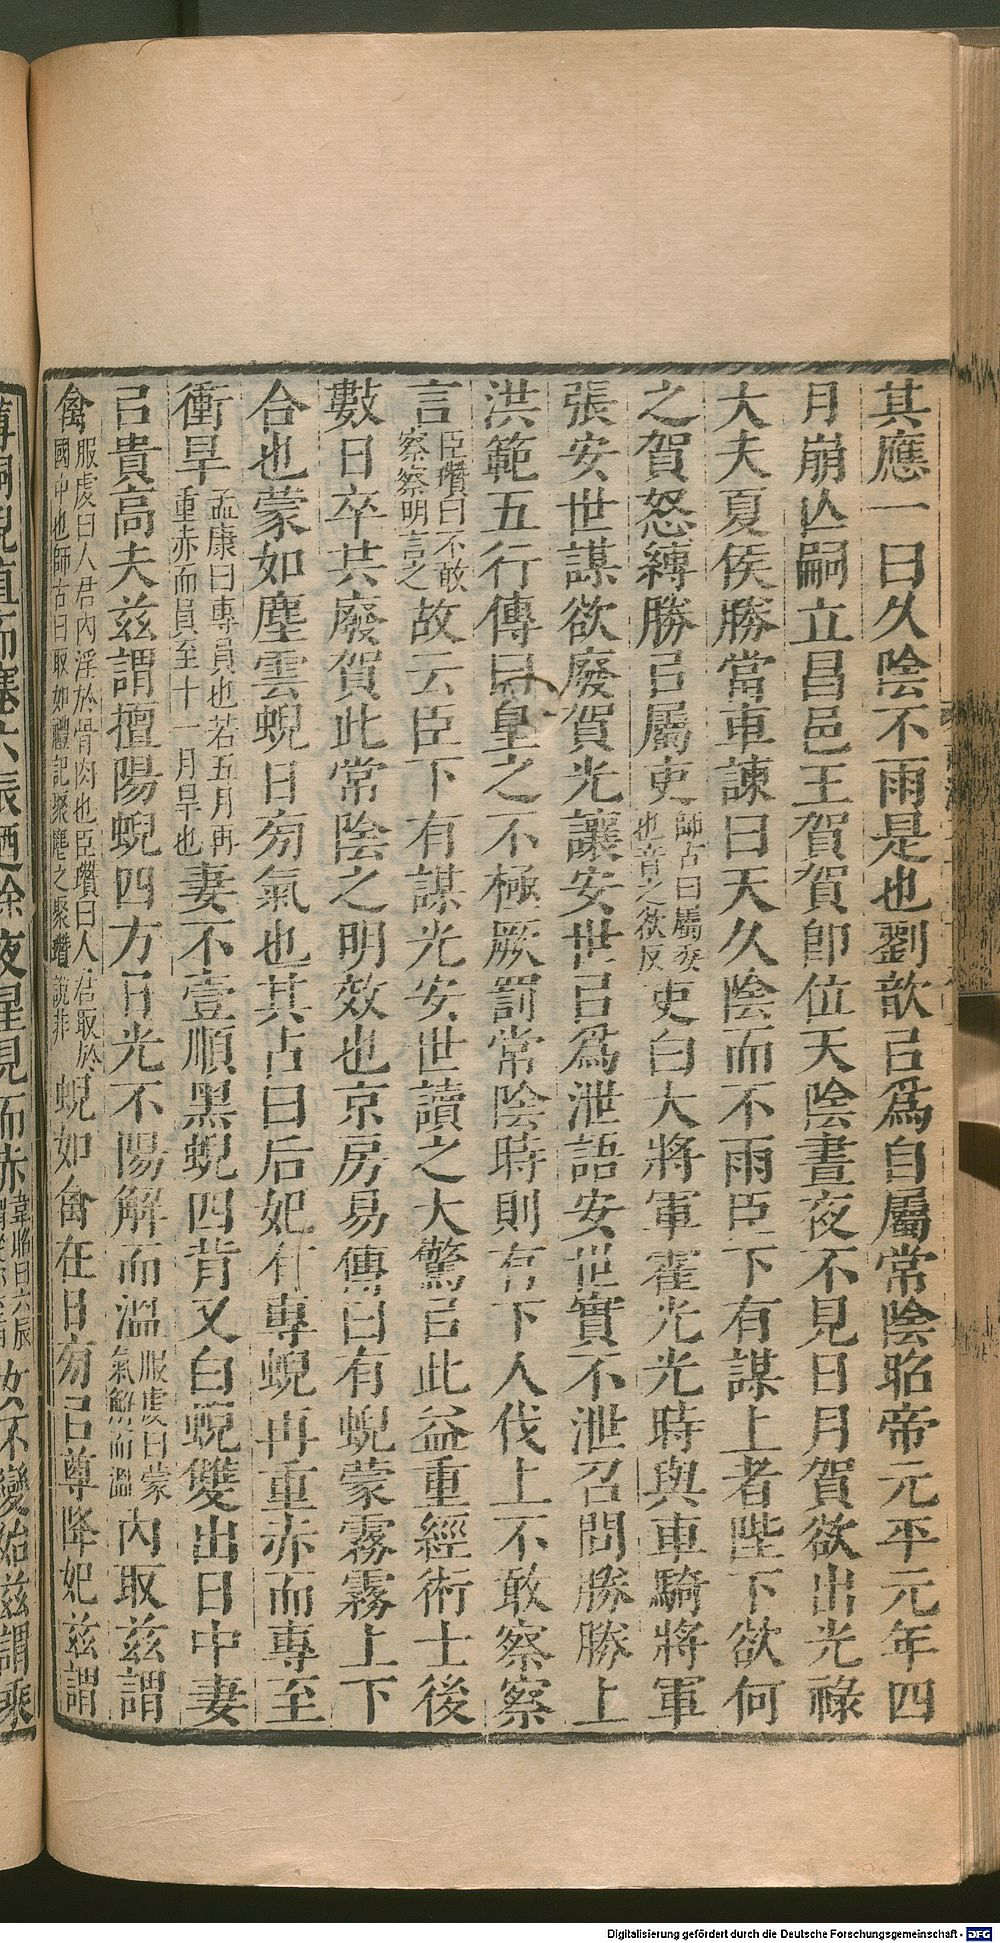 其應一曰久陰不雨是也劉歆㠯爲自屬常陰昭帝元平元年四
月崩亾嗣立昌邑王賀賀卽位天陰晝夜不見日月賀欲出光祿
大夫夏侯勝當車諫曰天久陰而不雨臣下有謀上者陛下欲何
之賀怒縛勝㠯屬吏師古曰屬委也音之欲反吏白大將軍霍光光時與車騎將軍
張安世謀欲廢賀光讓安世㠯爲泄語安世實不泄召問勝勝上
洪範五行傳曰皇之不極厥罰常陰時則有下人伐上不敢察察
言臣瓚曰不敢察察明言之故云臣下有謀光安世讀之大驚㠯此益重經術士後
數日卒共廢賀此常陰之明效也京房易傳曰有蜺蒙霧霧上下
合也蒙如塵雲蜺日旁氣也其占曰后妃有專蜺再重赤而專至
衝旱孟康曰專員也若五月再重赤而員至十一月旱也妻不壹順黑蜺四背又白蜺雙出日中妻
㠯貴高夫茲謂擅陽蜺四方日光不陽解而溫服虔曰蒙氣解而溫內取茲謂
禽服虔曰人君內淫於骨肉也臣瓚曰人君取於國中也師古曰取如禮記聚麀之聚瓚說非蜺如禽在日旁㠯尊降妃茲謂
薄嗣蜺直而塞六辰迺除夜星見而赤韋昭曰六辰女不變始茲謂乘
Digitalisierung gefördert durch die Deutsche Forschungsgemeinschaft - DFG